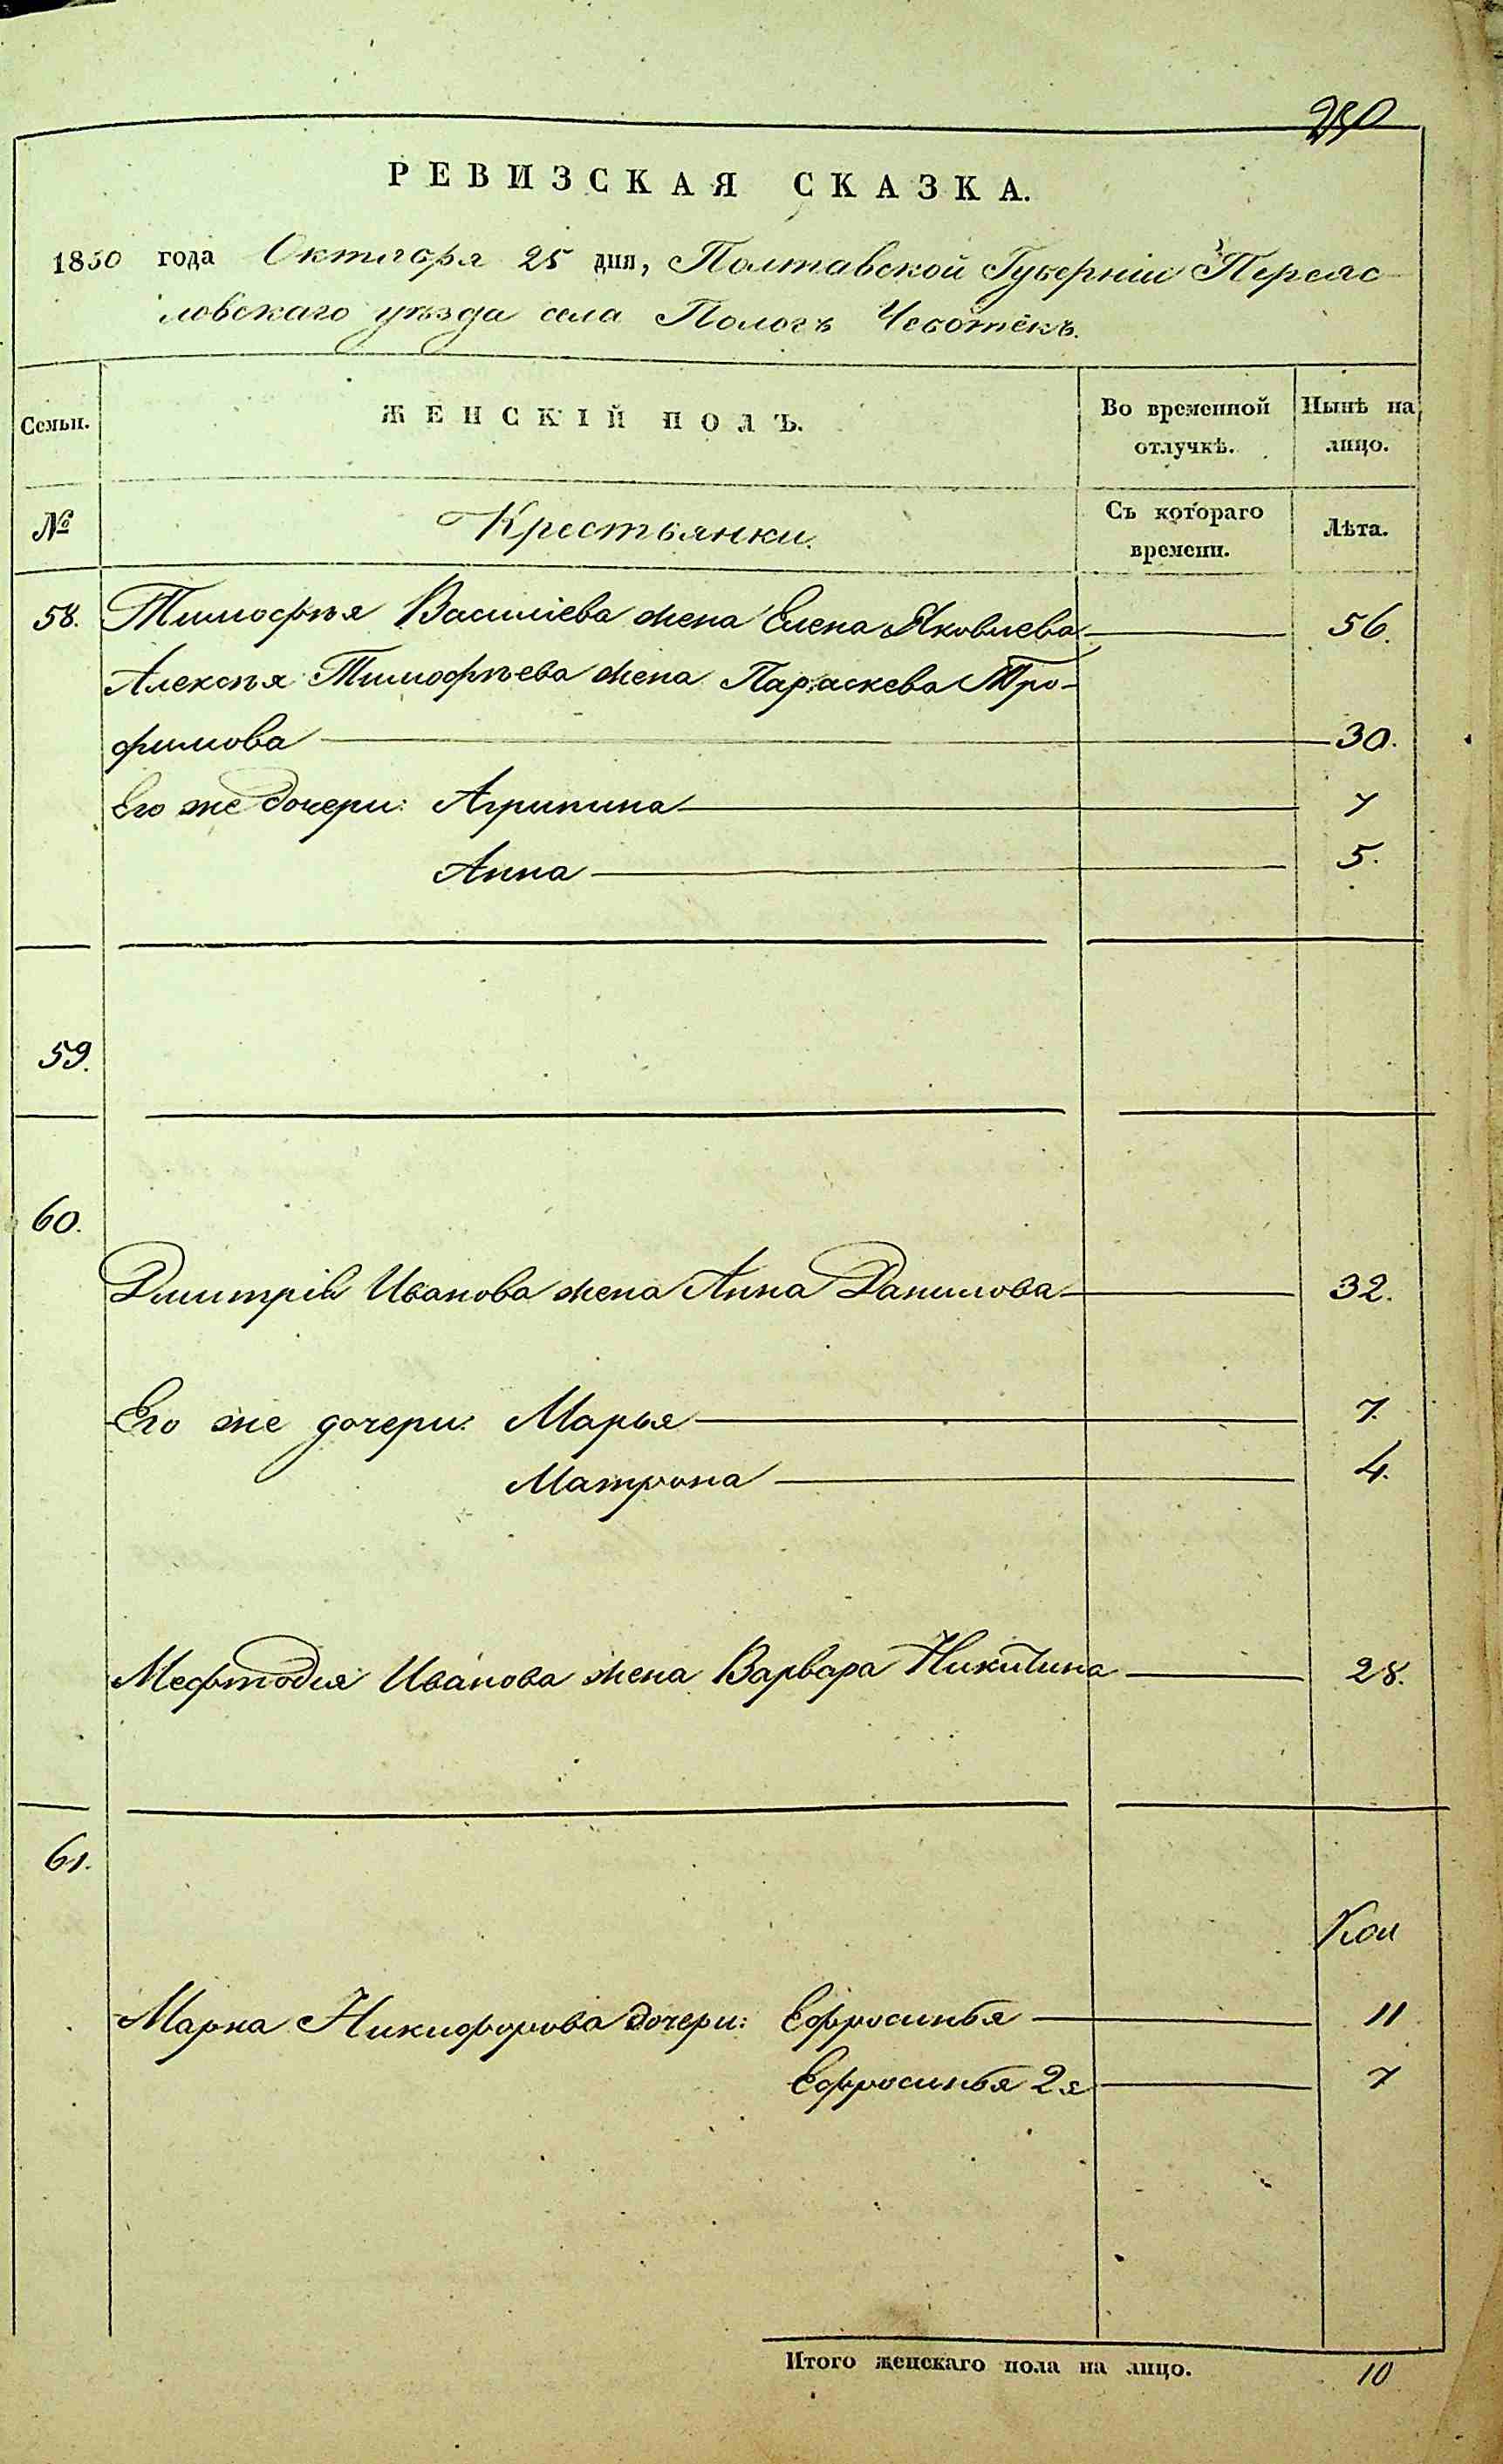 250
РЕВИЗСКАЯ СКАЗКА.
1850 года Октября 25 дня, Полтавской Губерніи Переяс-
ловскаго уѣзда села Пологъ Чеботекъ.
Семьи. ЖЕНСКІЙ ПОЛЪ. Во временной отлучкѣ. Нынѣ на лицо.
№ Крестьянки. Съ котораго времени. Лѣта.
58. Тимофѣя Василіева жена Елена Яковлева 56.
Алексѣя Тимофѣева жена Параскева Тро-
фимова 30.
Его же дочери: Агрипина 7
Анна 5.
59.
60.
Дмитрія Иванова жена Анна Данилова 32.
Его же дочери: Марья 7.
Матрона 4.
Мефтодія Иванова жена Варвара Никитина 28.
61.
Марка Никифорова дочери: Ефросинья 11
Ефросинья 2я 7
Итого женскаго пола на лицо. 10